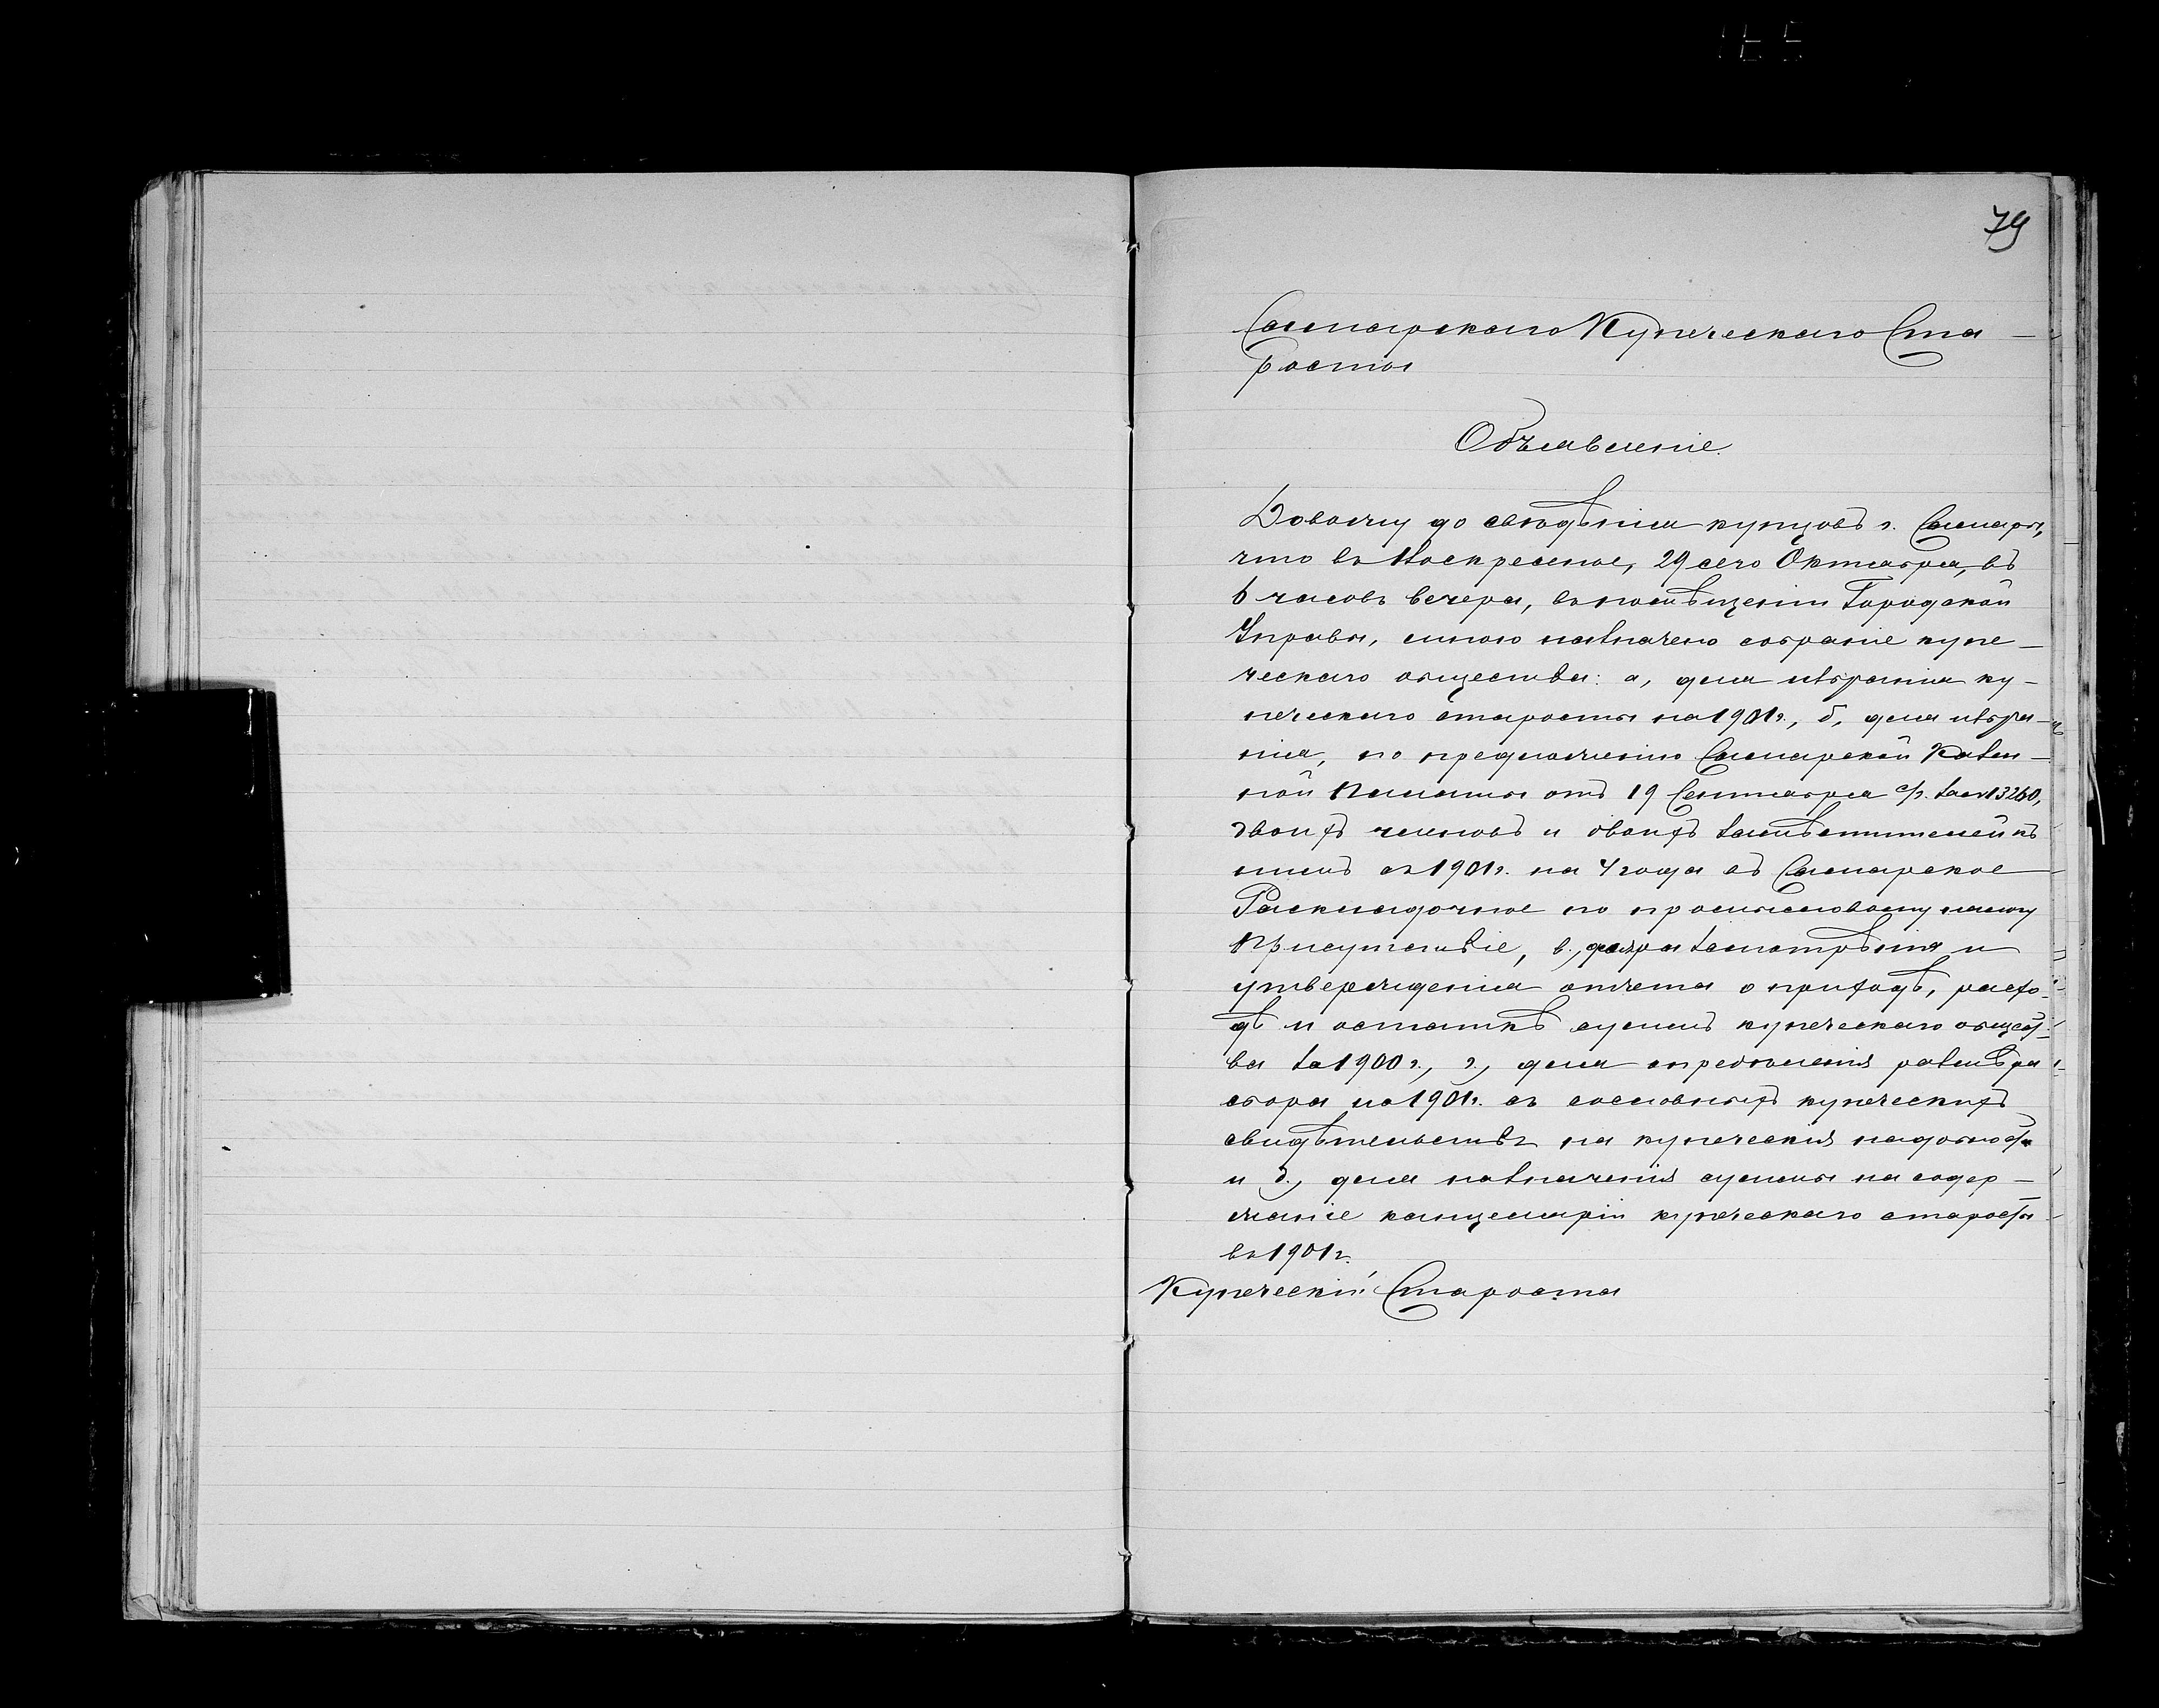 79
Самарскаго Купеческаго Ста-
росты
Объявленіе.
Довожу до свѣдѣнія купцовъ г. Самары,
что въ Воскресенье, 29 сего Октября, въ
6 часовъ вечера, въ помѣщеніи Городской
Управы, мною назначено собраніе купе-
ческаго общества: а, для избранія ку-
печескаго старосты на 1901 г., б, для избра-
нія, по предложенію Самарской Казен-
ной Палаты отъ 19 Сентября с/г. за № 13260,
двоихъ членовъ и двоихъ замѣстителей къ
нимъ съ 1901 г. на 4 года въ Самарское
Раскладочное по промысловому налогу
Присутствіе, в., для разсмотрѣнія и
утвержденія отчета о приходѣ, расхо-
дѣ и остаткѣ суммъ купеческаго общест-
ва за 1900 г., г., для опредѣленія размѣра
сбора на 1901 г. съ сословныхъ купеческихъ
свидѣтельствъ на купеческія надобност.
и д., для назначенія суммы на содер-
жаніе канцеляріи купеческаго старосты
въ 1901 г.
Купеческій Староста